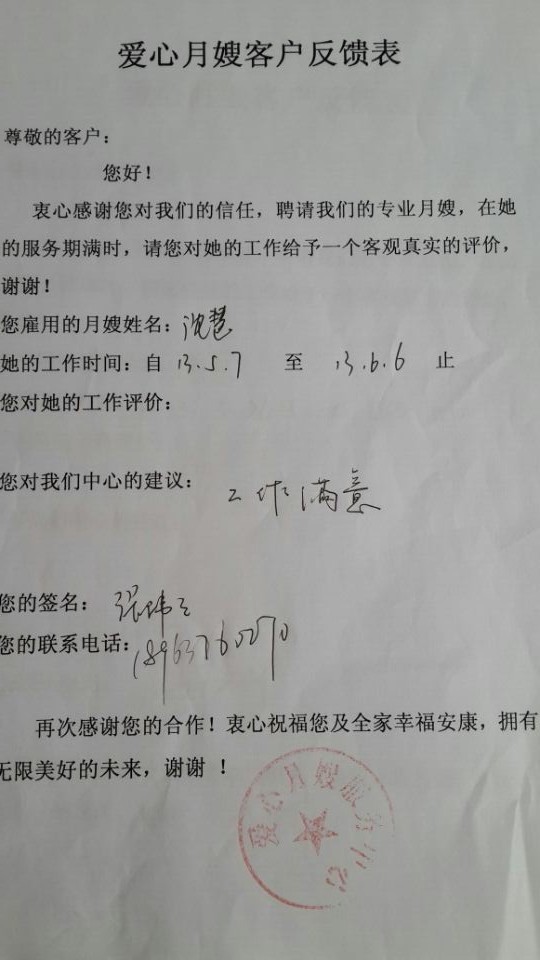 爱心月嫂客户反馈表
尊敬的客户：
您好！
衷心感谢您对我们的信任，聘请我们的专业月嫂，在她
的服务期满时，请您对她的工作给予一个客观真实的评价，
谢谢！
您雇用的月嫂姓名：沈慧
她的工作时间：自 13.5.7 至 13.6.6 止
您对她的工作评价：
您对我们中心的建议： 工作满意
您的签名：张
您的联系电话：
再次感谢您的合作！衷心祝福您及全家幸福安康，拥有
无限美好的未来，谢谢 ！
爱心月嫂服务中心